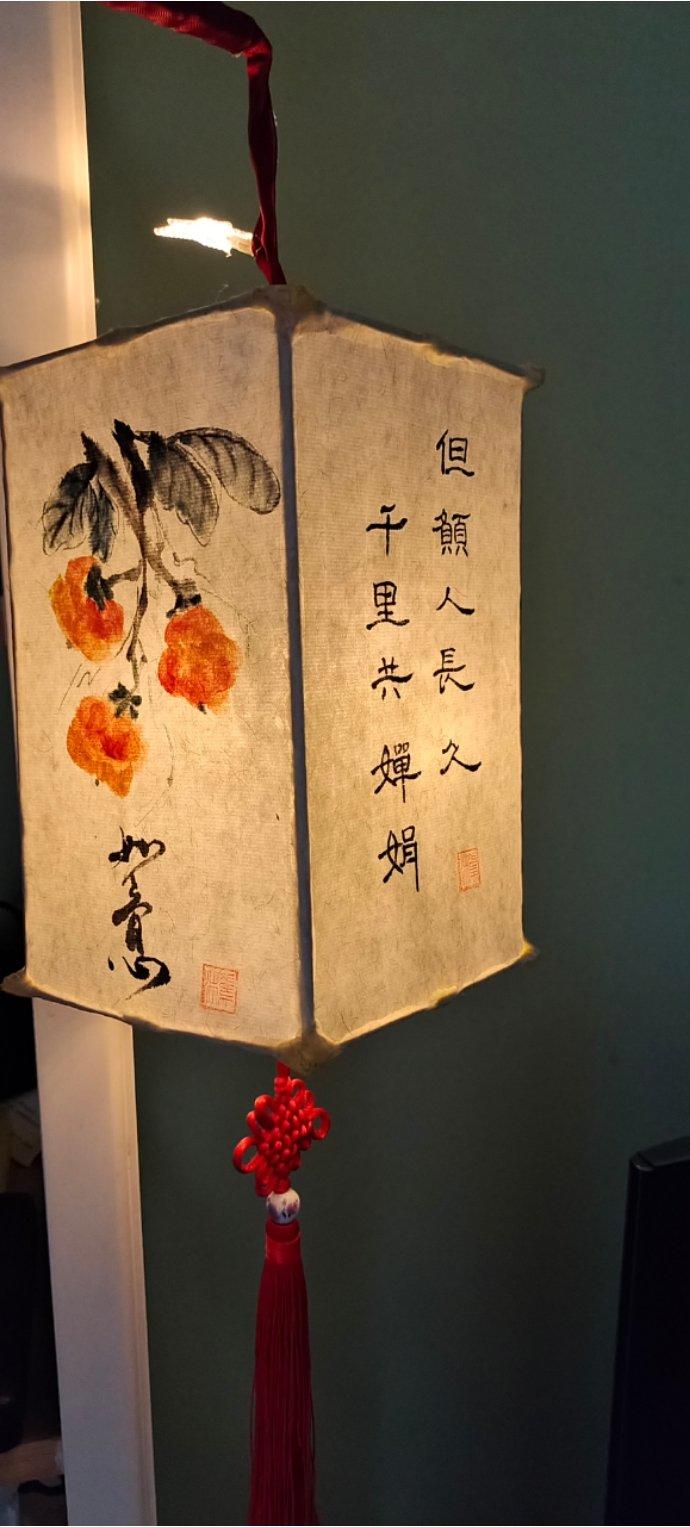 但願人長久
千里共嬋娟
如意